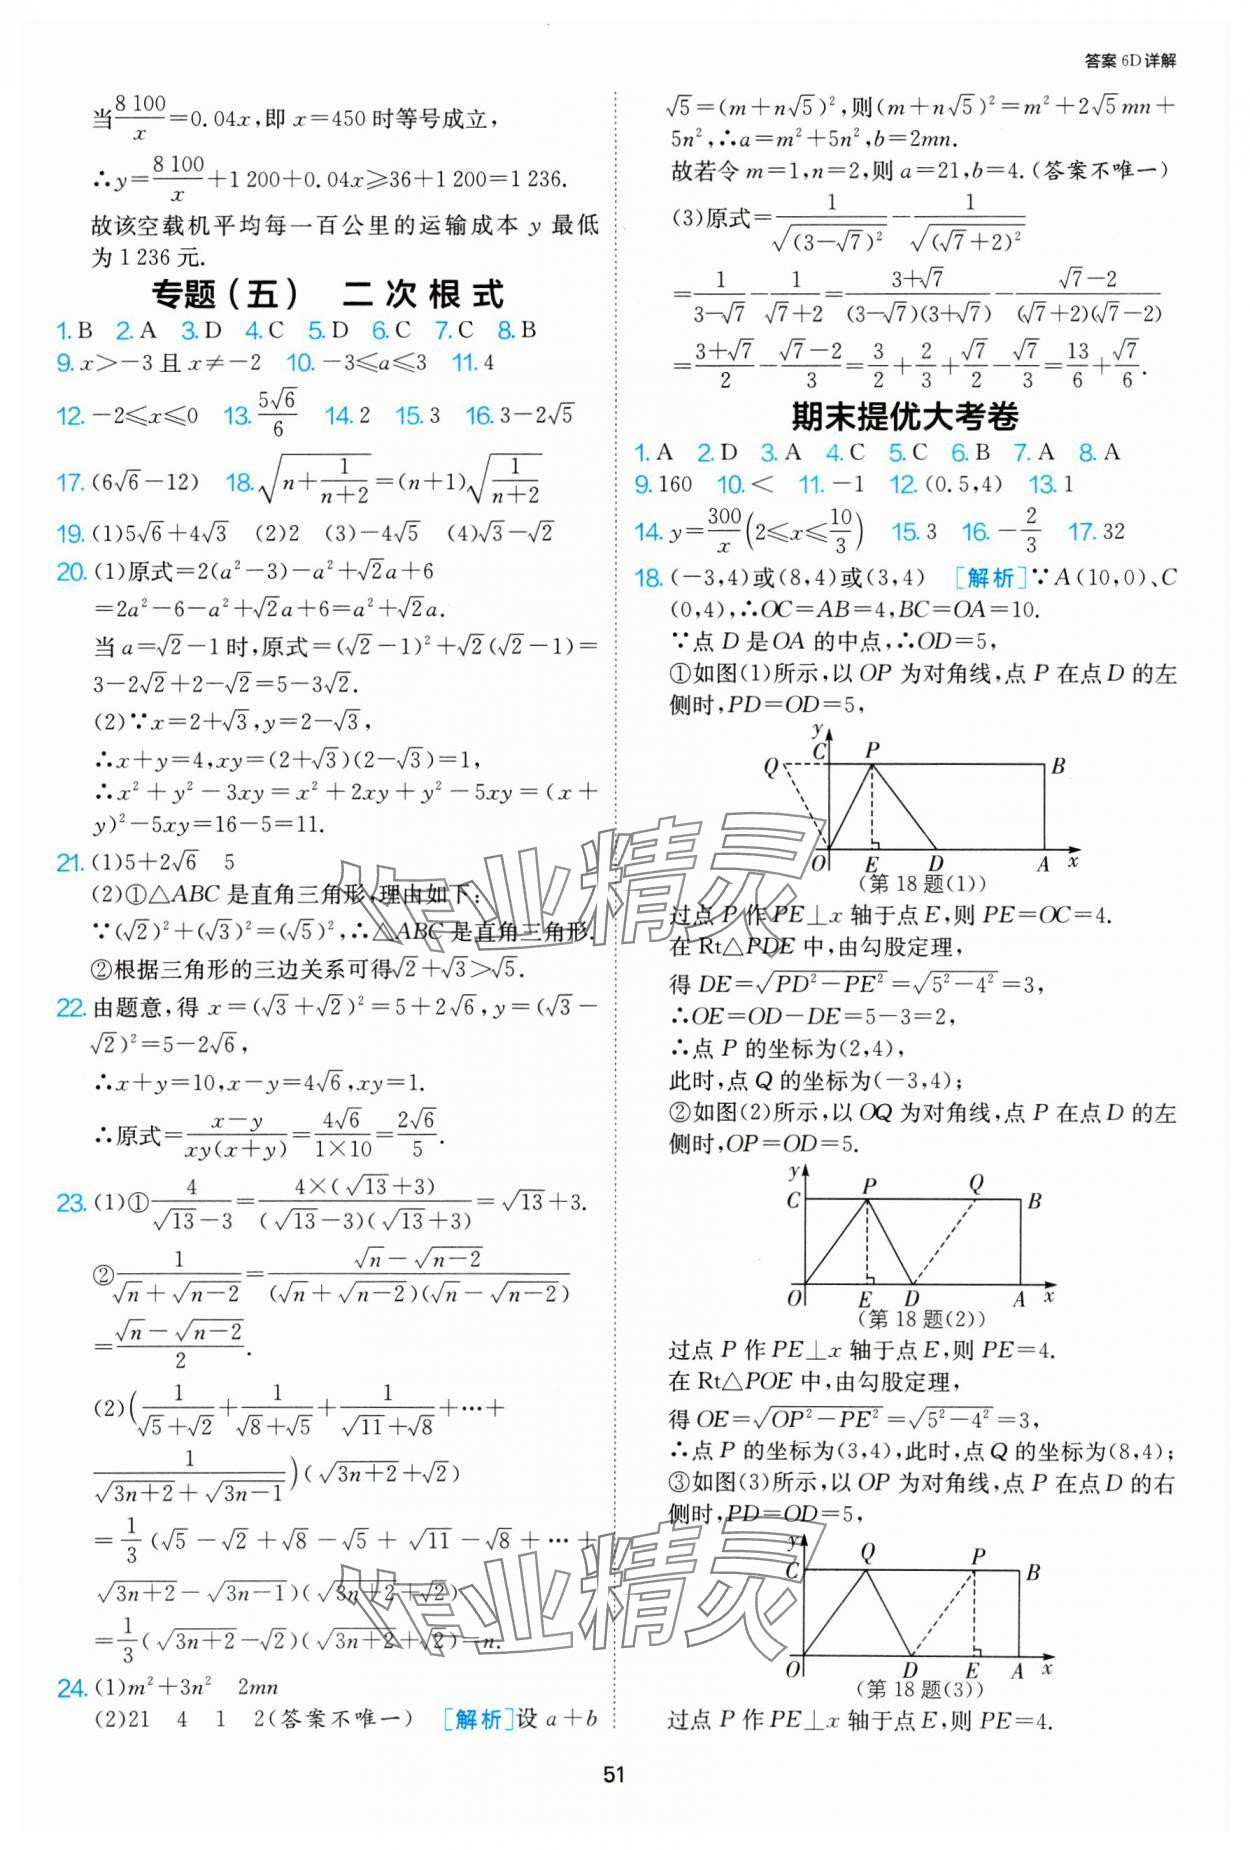 答案 6D详解
当8 100/x=0.04x,即 x=450 时等号成立,
∴y=8 100/x+1 200+0.04x≥36+1 200=1 236.
故该空载机平均每一百公里的运输成本 y 最低
为 1 236 元.
专题(五) 二次根式
1. B 2. A 3. D 4. C 5. D 6. C 7. C 8. B
9. x>-3 且 x≠-2 10. -3≤a≤3 11. 4
12. -2≤x≤0 13. 5√6/6 14. 2 15. 3 16. 3-2√5
17. (6√6-12) 18. √(n+1/(n+2))=(n+1)√(1/(n+2))
19. (1)5√6+4√3 (2)2 (3)-4√5 (4)√3-√2
20. (1)原式=2(a²-3)-a²+√2a+6
=2a²-6-a²+√2a+6=a²+√2a.
当 a=√2-1 时,原式=(√2-1)²+√2(√2-1)=
3-2√2+2-√2=5-3√2.
(2)∵x=2+√3,y=2-√3,
∴x+y=4,xy=(2+√3)(2-√3)=1,
∴x²+y²-3xy=x²+2xy+y²-5xy=(x+
y)²-5xy=16-5=11.
21. (1)5+2√6 5
(2)①△ABC 是直角三角形,理由如下:
∵(√2)²+(√3)²=(√5)²,∴△ABC 是直角三角形.
②根据三角形的三边关系可得√2+√3>√5.
22. 由题意,得 x=(√3+√2)²=5+2√6,y=(√3-
√2)²=5-2√6,
∴x+y=10,x-y=4√6,xy=1.
∴原式=(x-y)/(xy(x+y))=4√6/(1×10)=2√6/5.
23. (1)①4/(√13-3)=4×(√13+3)/((√13-3)(√13+3))=√13+3.
②1/(√n+√(n-2))=(√n-√(n-2))/((√n+√(n-2))(√n-√(n-2)))
=(√n-√(n-2))/2.
(2)(1/(√5+√2)+1/(√8+√5)+1/(√11+√8)+…+
1/(√(3n+2)+√(3n-1)))(√(3n+2)+√2)
=1/3(√5-√2+√8-√5+√11-√8+…+
√(3n+2)-√(3n-1))(√(3n+2)+√2)
=1/3(√(3n+2)-√2)(√(3n+2)+√2)=n.
24. (1)m²+3n² 2mn
(2)21 4 1 2(答案不唯一) [解析]设 a+b
√5=(m+n√5)²,则(m+n√5)²=m²+2√5mn+
5n²,∴a=m²+5n²,b=2mn.
故若令 m=1,n=2,则 a=21,b=4.(答案不唯一)
(3)原式=1/√((3-√7)²)-1/√((√7+2)²)
=1/(3-√7)-1/(√7+2)=(3+√7)/((3-√7)(3+√7))-(√7-2)/((√7+2)(√7-2))
=(3+√7)/2-(√7-2)/3=3/2+2/3+√7/2-√7/3=13/6+√7/6.
期末提优大考卷
1. A 2. D 3. A 4. C 5. C 6. B 7. A 8. A
9. 160 10. < 11. -1 12. (0.5,4) 13. 1
14. y=300/x(2≤x≤10/3) 15. 3 16. -2/3 17. 32
18. (-3,4)或(8,4)或(3,4) [解析]∵A(10,0)、C
(0,4),∴OC=AB=4,BC=OA=10.
∵点 D 是OA 的中点,∴OD=5,
①如图(1)所示,以 OP 为对角线,点 P 在点 D 的左
侧时,PD=OD=5,
y C P B Q O E D A x
(第 18 题(1))
过点 P 作 PE⊥x 轴于点 E,则 PE=OC=4.
在 Rt△PDE 中,由勾股定理,
得 DE=√(PD²-PE²)=√(5²-4²)=3,
∴OE=OD-DE=5-3=2,
∴点 P 的坐标为(2,4),
此时,点 Q 的坐标为(-3,4);
②如图(2)所示,以 OQ 为对角线,点 P 在点 D 的左
侧时,OP=OD=5.
y C P Q B O E D A x
(第 18 题(2))
过点 P 作 PE⊥x 轴于点 E,则 PE=4.
在 Rt△POE 中,由勾股定理,
得 OE=√(OP²-PE²)=√(5²-4²)=3,
∴点 P 的坐标为(3,4),此时,点 Q 的坐标为(8,4);
③如图(3)所示,以 OP 为对角线,点 P 在点 D 的右
侧时,PD=OD=5,
y C Q P B O D E A x
(第 18 题(3))
过点 P 作 PE⊥x 轴于点 E,则 PE=4.
51
作业精灵
作业精灵